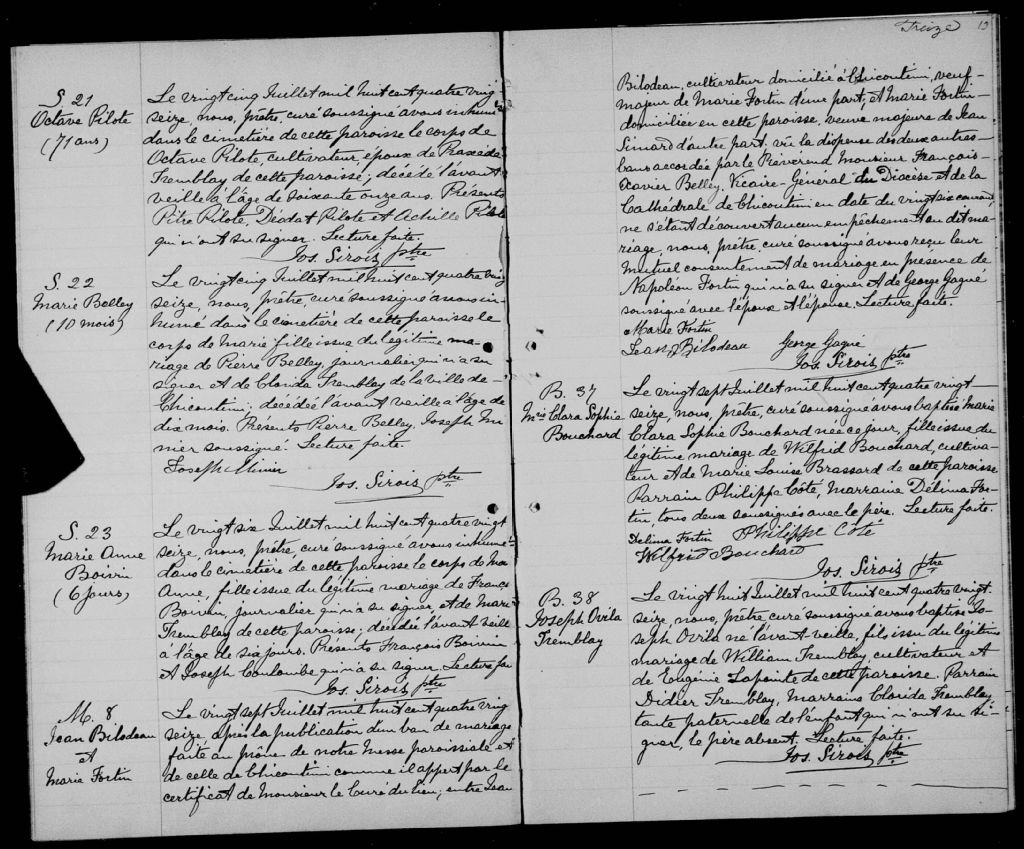 S. 21
Octave Pilote
(71 ans)
Le vingt cinq Juillet mil huit cent quatre vingt
seize, nous, prêtre, curé soussigné avons inhumé
dans le cimetière de cette paroisse le corps de
Octave Pilote, cultivateur, époux de Praxède
Tremblay de cette paroisse; décédé l'avant
veille à l'âge de soixante onze ans. Présents
Pitre Pilote, Diodat Pilote et Achille Pilote
qui n'ont su signer. Lecture faite.
Jos. Sirois ptre
S. 22
Marie Belley
(10 mois)
Le vingt cinq Juillet mil huit cent quatre vingt
seize, nous, prêtre, curé soussigné avons in-
humé dans le cimetière de cette paroisse le
corps de Marie fille issue du légitime ma-
riage de Pierre Belley, journalier qui n'a su
signer et de Clarida Tremblay de la ville de
Chicoutimi; décédée l'avant veille à l'âge de
dix mois. Présents Pierre Belley, Joseph Mi-
nier soussigné. Lecture faite.
Joseph Minier
Jos. Sirois ptre
S. 23
Marie Anne
Boivin
(6 jours)
Le vingt six Juillet mil huit cent quatre vingt
seize, nous, prêtre, curé soussigné avons inhumé
dans le cimetière de cette paroisse le corps de Marie
Anne, fille issue du légitime mariage de François
Boivin, journalier qui n'a su signer, et de Marie
Tremblay de cette paroisse; décédée l'avant veille
à l'âge de six jours. Présents François Boivin
et Joseph Coulombe qui n'a su signer. Lecture faite
Jos. Sirois ptre
M. 8
Jean Bilodeau
et
Marie Fortin
Le vingt sept Juillet mil huit cent quatre vingt
seize, après la publication d'un ban de mariage
faite au prône de notre Messe paroissiale et
de celle de Chicoutimi comme il appert par le
certificat de Monsieur le Curé du lieu; entre Jean
Treize 13
Bilodeau, cultivateur domicilié à Chicoutimi, veuf
majeur de Marie Fortin d'une part; et Marie Fortin
domiciliée en cette paroisse, veuve majeure de Jean
Simard d'autre part: vu la dispense des deux autres
bans accordée par le Révérend Monsieur François
Xavier Belley, Vicaire-Général du Diocèse et de la
Cathédrale de Chicoutimi en date du vingt six courant,
ne s'étant découvert aucun empêchement au dit ma-
riage, nous, prêtre, curé soussigné avons reçu leur
Mutuel consentement de mariage en présence de
Napoléon Fortin qui n'a su signer et de George Gagné
soussigné avec l'époux et l'épouse. Lecture faite
Marie Fortin
Jean Bilodeau George Gagné
Jos. Sirois ptre
B. 37
Mrie Clara Sophie
Bouchard
Le vingt sept Juillet mil huit cent quatre vingt
seize, nous, prêtre, curé soussigné avons baptisé Marie
Clara Sophie Bouchard née ce jour, fille issue du
légitime mariage de Wilfrid Bouchard, cultiva-
teur et de Marie Louise Brassard de cette paroisse.
Parrain Philippe Côté, Marraine Délima For-
tin, tous deux soussignés avec le père. Lecture faite.
Delima Fortin Philippe Coté
Wilfrid Bouchard
Jos. Sirois ptre
B. 38
Joseph Ovila
Tremblay
Le vingt huit Juillet mil huit cent quatre vingt
seize, nous, prêtre curé soussigné avons baptisé Jo-
seph Ovila né l'avant veille, fils issu du légitime
mariage de William Tremblay, cultivateur et
de Eugénie Lapointe de cette paroisse. Parrain
Didier Tremblay, Marraine Clorida Tremblay
tante paternelle de l'enfant qui n'ont su si-
gner, le père absent. Lecture faite.
Jos. Sirois ptre